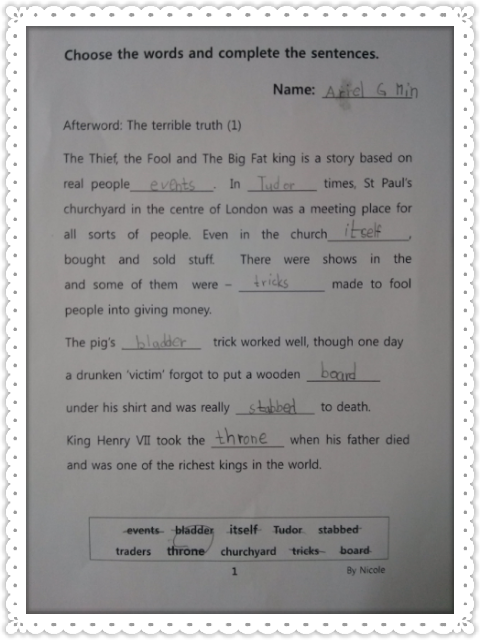 Choose the words and complete the sentences.
Name: Ariel G Min
Afterword: The terrible truth (1)
The Thief, the Fool and The Big Fat king is a story based on
real people events. In Tudor times, St Paul's
churchyard in the centre of London was a meeting place for
all sorts of people. Even in the church itself,
bought and sold stuff. There were shows in the
and some of them were – tricks made to fool
people into giving money.
The pig's bladder trick worked well, though one day
a drunken 'victim' forgot to put a wooden board
under his shirt and was really stabbed to death.
King Henry VII took the throne when his father died
and was one of the richest kings in the world.
events bladder itself Tudor stabbed
traders throne churchyard tricks board
1
By Nicole